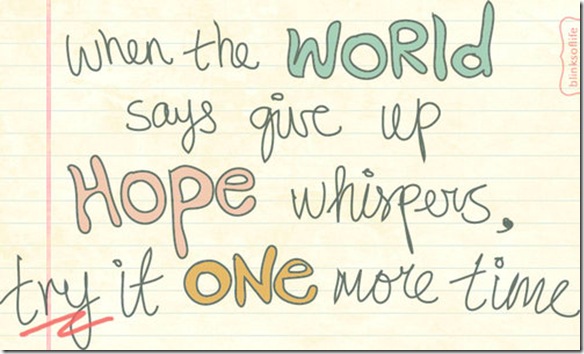 when the WORLD
says give up
HOPE whispers,
try it ONE more time
blinksoflife